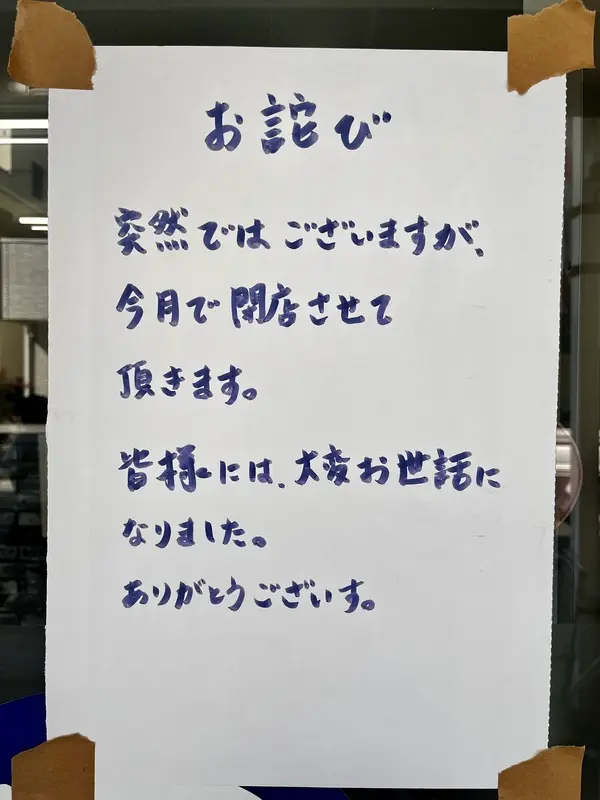 お詫び
突然ではございますが、
今月で閉店させて
頂きます。
皆様には、大変お世話に
なりました。
ありがとうございす。